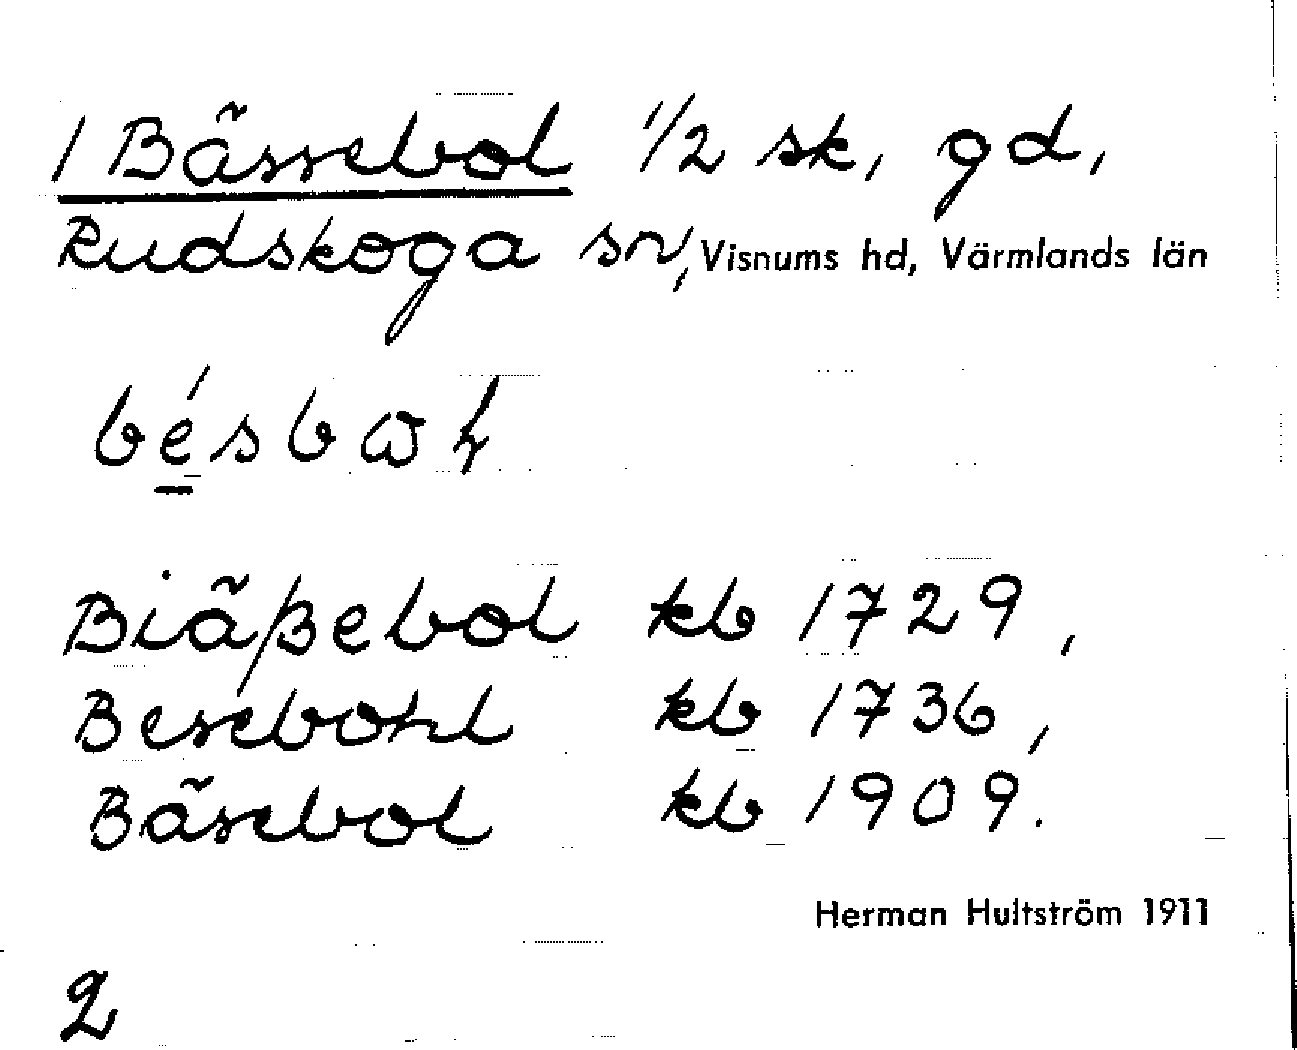 1 Bässebol 1/2 sk, gd,
Rudskoga sn, Visnums hd, Värmlands län
bésbωɫ
Biäßebol kb 1729,
Besebohl kb 1736,
Bäsebol kb 1909.
Herman Hultström 1911
2